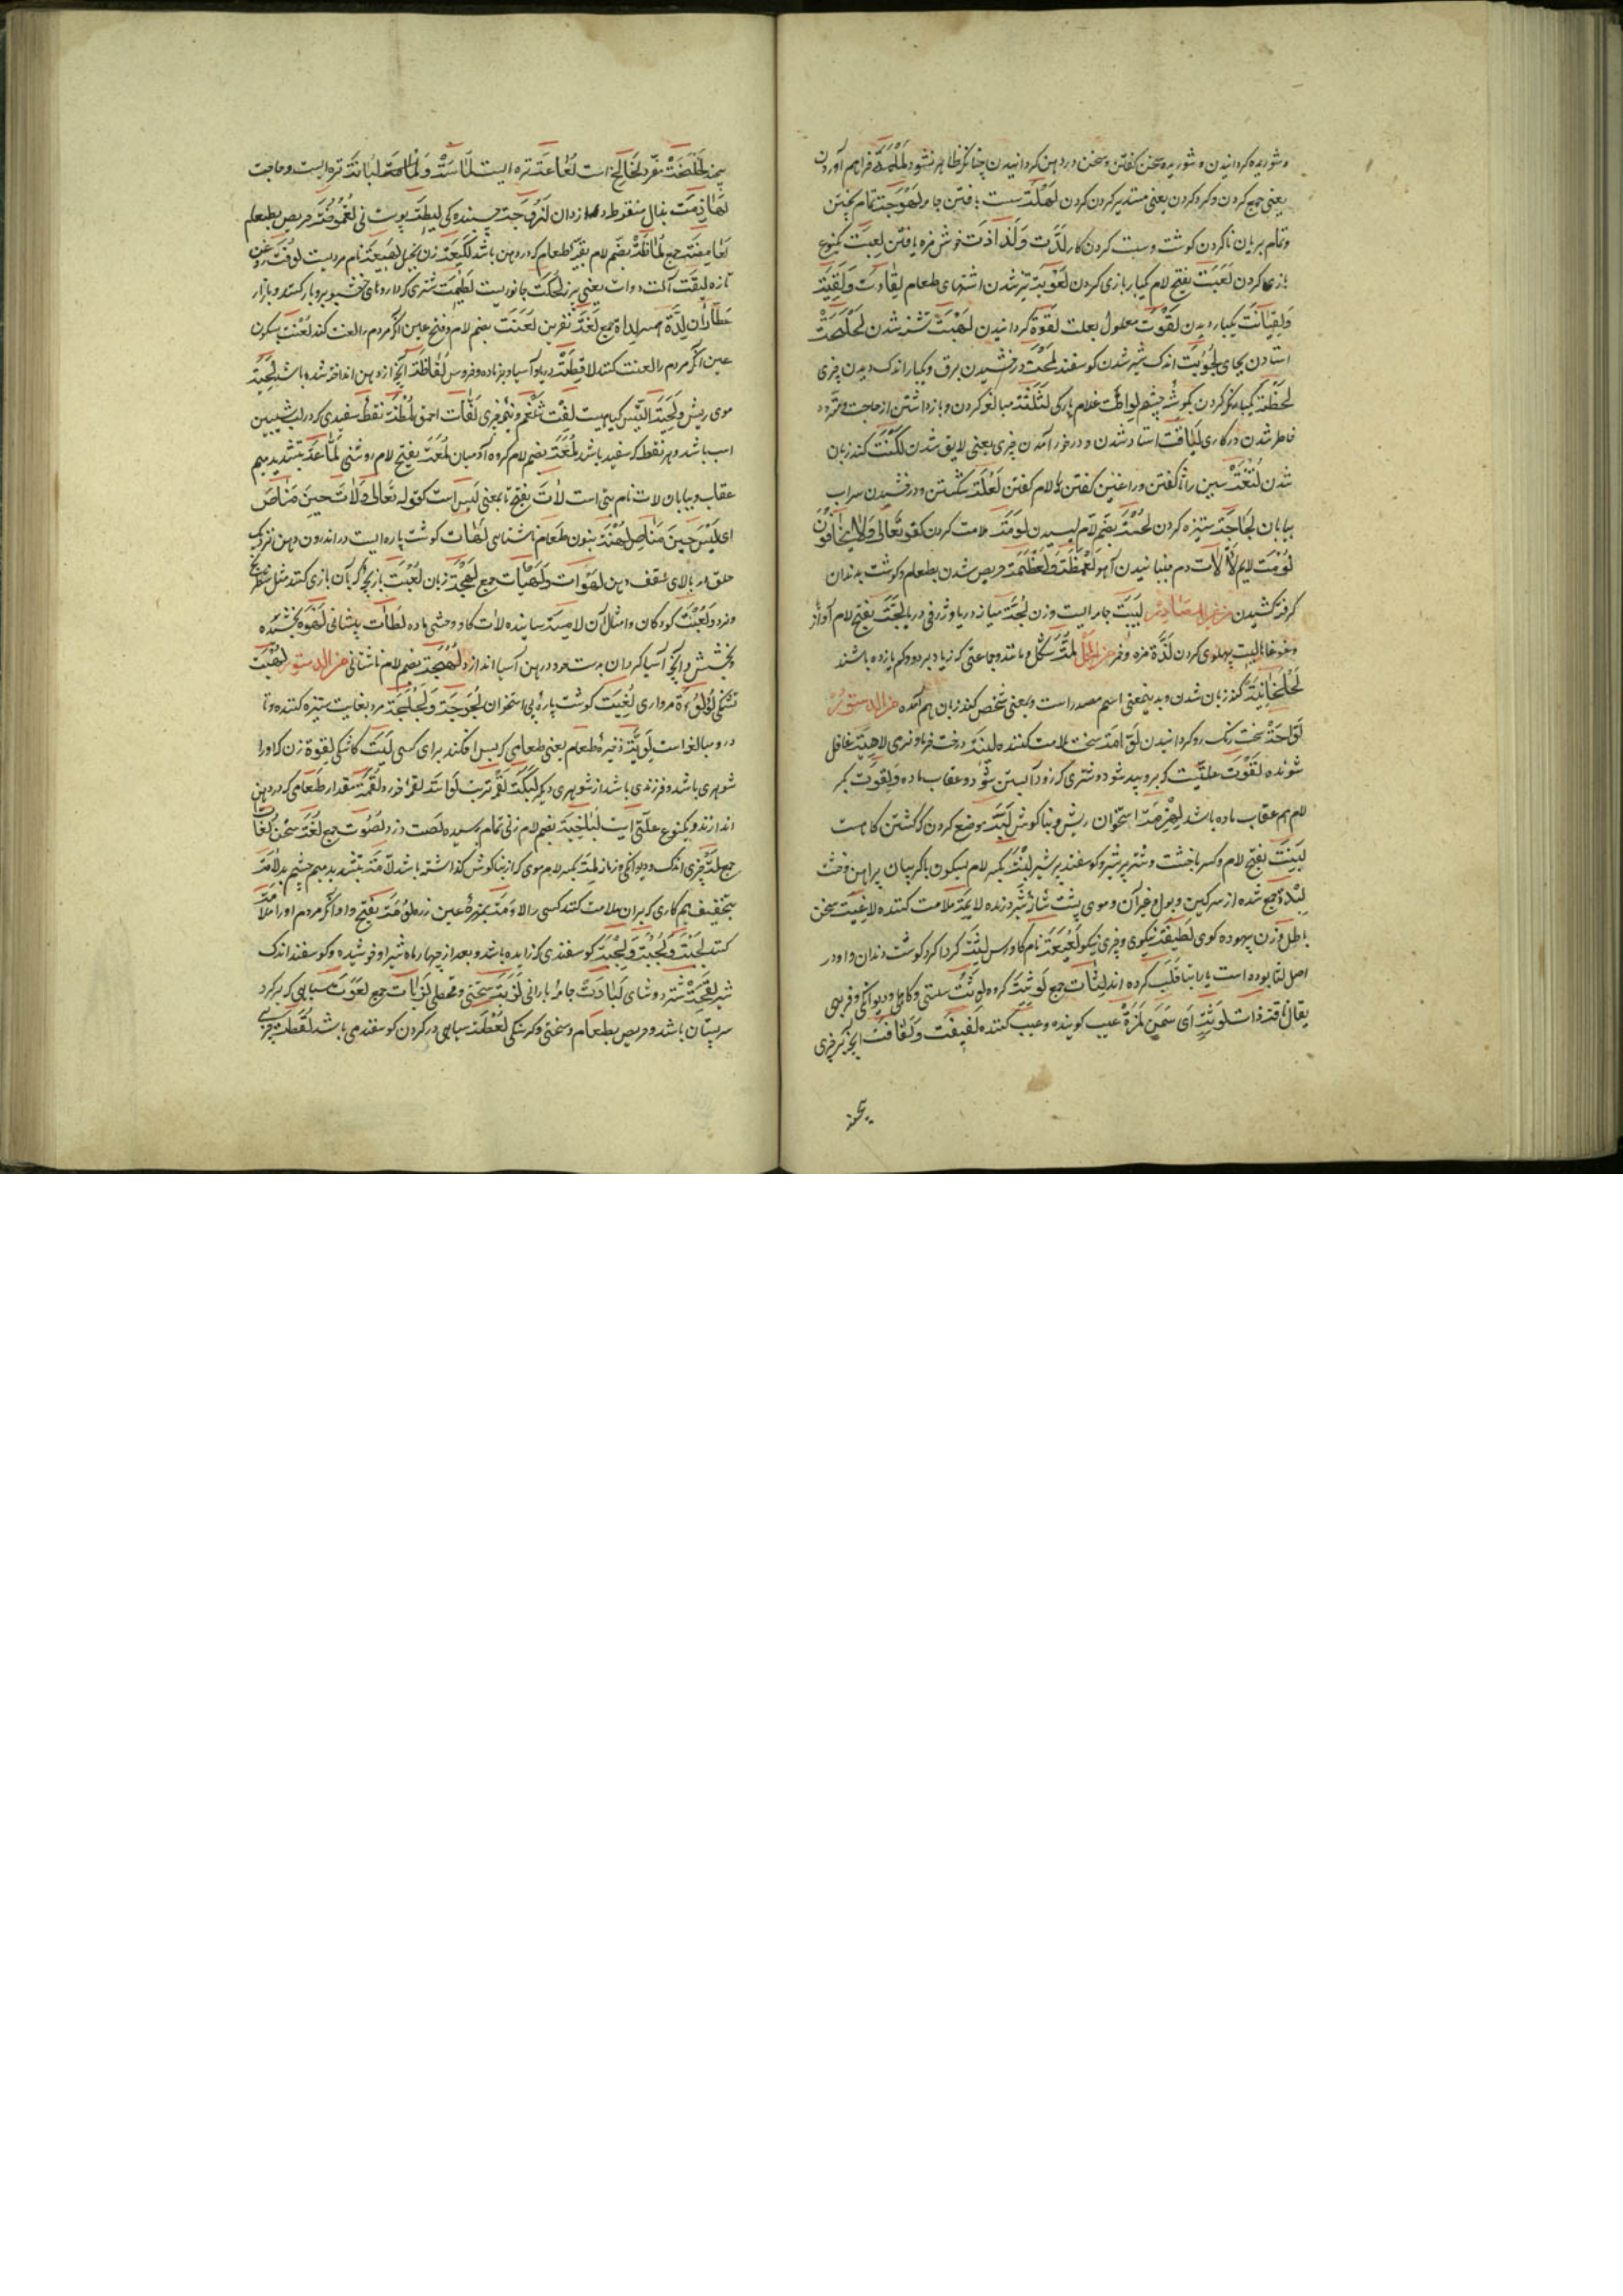 و شوریده کردانیدن و شوریده سخن کفتن و سخن در دهن کردانیدن چنانکه ظاهر نشود لملمة فراهم آوردن
یعنی جمع کردن و کرد کردن یعنی مستدیر کردن کردن لهلهة سست بافتن جامه لهوجة تمام نپختن
و تمام بریان ناکردن کوشت و سست کردن کار لذّت و لذاذت خوش مزه یافتن لعبت یکنوع
بازی کردن لعبت بفتح لام یکبار بازی کردن
و لقیانت یکبار دیدن لقوت معلول بعلت لقوة کردانیدن لهبت تشنه شدن
استادن بجای لجوبت اندک شیر شدن کوسفند لمحت درفشیدن برق و یکبار اندک دیدن چیزی
لحظة یکبار نکاه کردن بکوشهٔ چشم لواطت غلام بارکی لثلثة مبالغه کردن و بازداشتن از حاجت و متردد
خاطر شدن در کاری لیاقت استاد شدن و در خور آمدن چیزی یعنی لایق شدن لکنت کند زبان
شدن لثغة سین را ثا کفتن و را غین کفتن یا لام کفتن لعلعة شکستن و درفشیدن سراب
بیابان لجاجة ستیزه کردن لحسة بضم لام لیسیدن لومة ملامت کردن کقوله تعالی ولا یخافون
لومت لایم لألأت دم جنبانیدن آهو لعمظة حریص شدن بطعام و کوشت بدندان
کرفته کشیدن من غیر المصادر لبیبت جامه ایست وزن لجّة میانه دریا و ژرفی دریا لجّة بفتح لام آواز
و غوغا پهلوی کردن لذّة مزه لمّة شکل و مانند و جماعتی که زیاده بر دو و کم یازده باشند
لخلخانیّة کند زبان شدن و بدینمعنی اسم مصدر است و بمعنی شخص کند زبان هم آمده من الدستور
لوّاحة سخت رنک رو کردانیدن لوّامة سخت ملامت کننده لینة درخت خرما و نرمی لاهیة غافل
شونده لقوت علتیست که برو پید شود و شتری که زود آبستن شود و عقاب ماده و لقوت بکسر
لام هم عقاب ماده باشد لهزمة استخوان ریش و بناکوش لبّة موضع کردن کشتن کاهست
لبنت بفتح لام و کسر با خشت و شتر پر شیر و کوسفند پر شیر لبنت بکسر لام بسکون با کریبان پراهن و خشت
لبدة جمع شده از سرکین و بول و غیر آن و موی پشت شانهٔ شیر درنده لایمة ملامت کننده لاغیت سخن
باطل و زن بیهوده کوی لطیفة نیکوی و چیزی نیکو نام کاورس لثة کرداکرد کوشت دندان و او در
اصل لثا بوده است یا را بتا قلب کرده اند لثات جمع لوثت کروه لوثت سستی و کاهلی و دیوانکی و فربهی
یقال ناقة ذات لوثة ای سمن لمزة عیب کوینده و عیب کننده لفیفت و لفافت آنچه بر چیزی
پیچند
پیچند مفرد لخالخ است لعاعة تره ایست لبانة تره ایست و حاجت
لهاذمت بذال منقوطه دزدان لزوجت چسپنده کی لیطة پوست نی لعموظة حریص بطعام
لعامظة جمع لماظة بضم لام بقیهٔ طعام که در دهن باشد لکیعة زن بخیل لهیعة نام مردیست لوقة روغن
تازه لیقت آلت دوات یعنی پرز لحکت جانوریست لطیمت شتری که داروهای خوشبو برو بار کنند و بازار
عطاران لدة همسر لدات جمع لعنة نفرین لعنت بضم لام و فتح عین آنکه مردم را لعنت کند لعنت بسکون
عین آنکه مردم را لعنت کنند لافظة دریا و آسیا و بز ماده و خروس لفاظة آنچه از دهن انداخته شده باشد لحیة
موی ریش و لحیة التیس کیاهیست لفت شلغم و نیم چیزی لفات احمق لمظة نقطهٔ سفیدی که در لب شیبین
اسب باشد و هر نقطه که سفید باشد لمعة بضم لام کروه آدمیان لمعة بفتح لام روشنی لمّاعة بتشدید میم
عقاب و بیابان لات نام بتی است لات بفتح تا بمعنی لیس است کقوله تعالی ولات حین مناص
ای لیس حین مناص لهنة بنون طعام ناشتاسی لهات کوشت پاره ایست در اندرون دهن نزدیک
حلق در بالای سقف دهن لهوات و لهیات جمع لهجة زبان لعبت بازیچه که بآن بازی کنند مثل شطرنج
و نرد و لعبت کودکان و امثال آن لامسة ساینده لات کاو وحشی ماده لطات پیشانی لهوة بخشنده
و بخشش و آنچه آسیا کردان بدست خود در دهن آسیا اندازد لهجة بضم لام ناشتائی من الدستور لهبت
تشنکی لؤلؤة مرواری لغبت کوشت پارهٔ بی استخوان لجوجة و لجلجة مرد بغایت ستیزه کننده و تا
درو مبالغه است لویّة ذخیرهٔ طعام یعنی طعامی که پس افکند برای کسی لیت کاشکی لقوة زن که او را
شوهری باشد و فرزندی باشد از شوهری دیکر لقمة مقدار طعامی که در دهن
اندازند و یکنوع علتی است لباخیة بضم لام زنی تمام رسیده لصت دزد لصوت جمع لغة سخن لغات
جمع لمّة چیزی اندک و دیوانکی و زمانه لمة بکسر لام موی که از بناکوش کذاشته باشد لامّة بتشدید میم چشم بد لامة
بتخفیف میم کاری که بر آن ملامت کنند کسی را لاومة بهمزهٔ عین زره لومة بفتح واو آنکه مردم او را ملامة
کنند لجبت و لجبت و لجبت کوسفندی که زاییده باشد و بعد از چهار ماه شیر او خوشیده و کوسفند اندک
شیر لقحة شتر دوشای لبادت جامهٔ بارانی لزبت سختی و قحطی لزبات جمع لعوت سیاهی که بر کرد
سر پستان باشد و حریص بطعام و سختی و کرسنکی لعطة سیاهی در کردن کوسفند می باشد لقطت چیزی